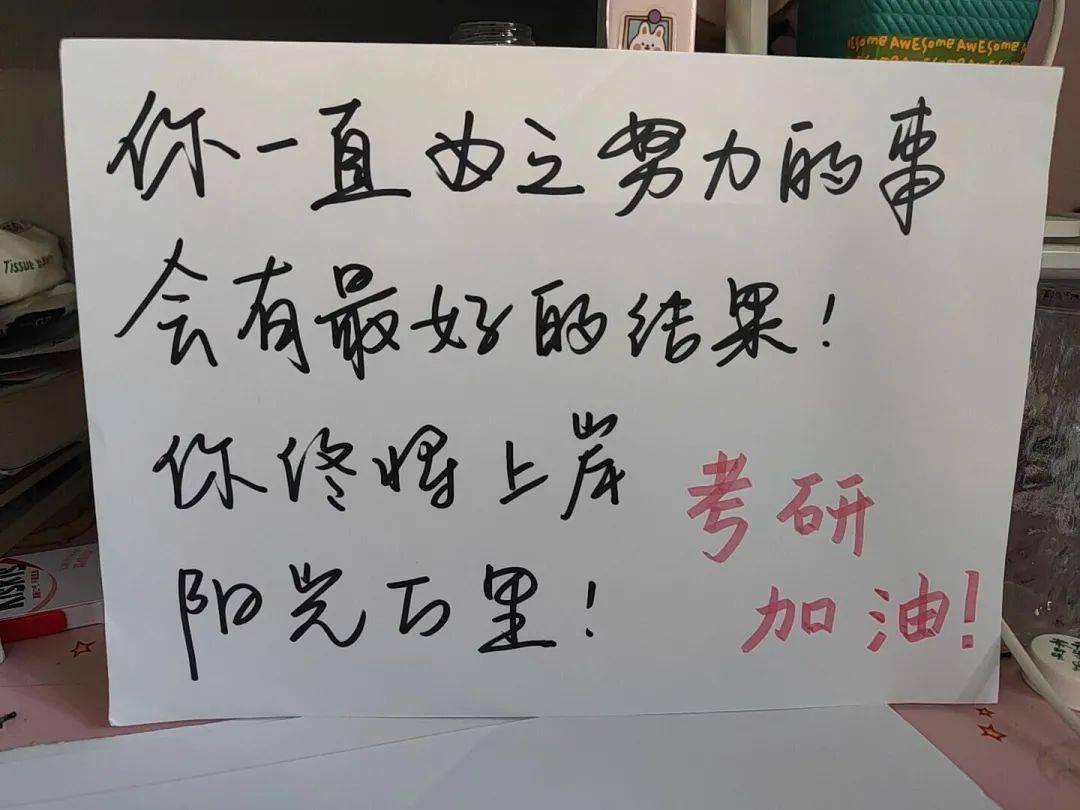 你一直为之努力的事
会有最好的结果！
你终将上岸
阳光万里！
考研
加油！
esome AWESOME AWESOME
Tissue
KISKIS